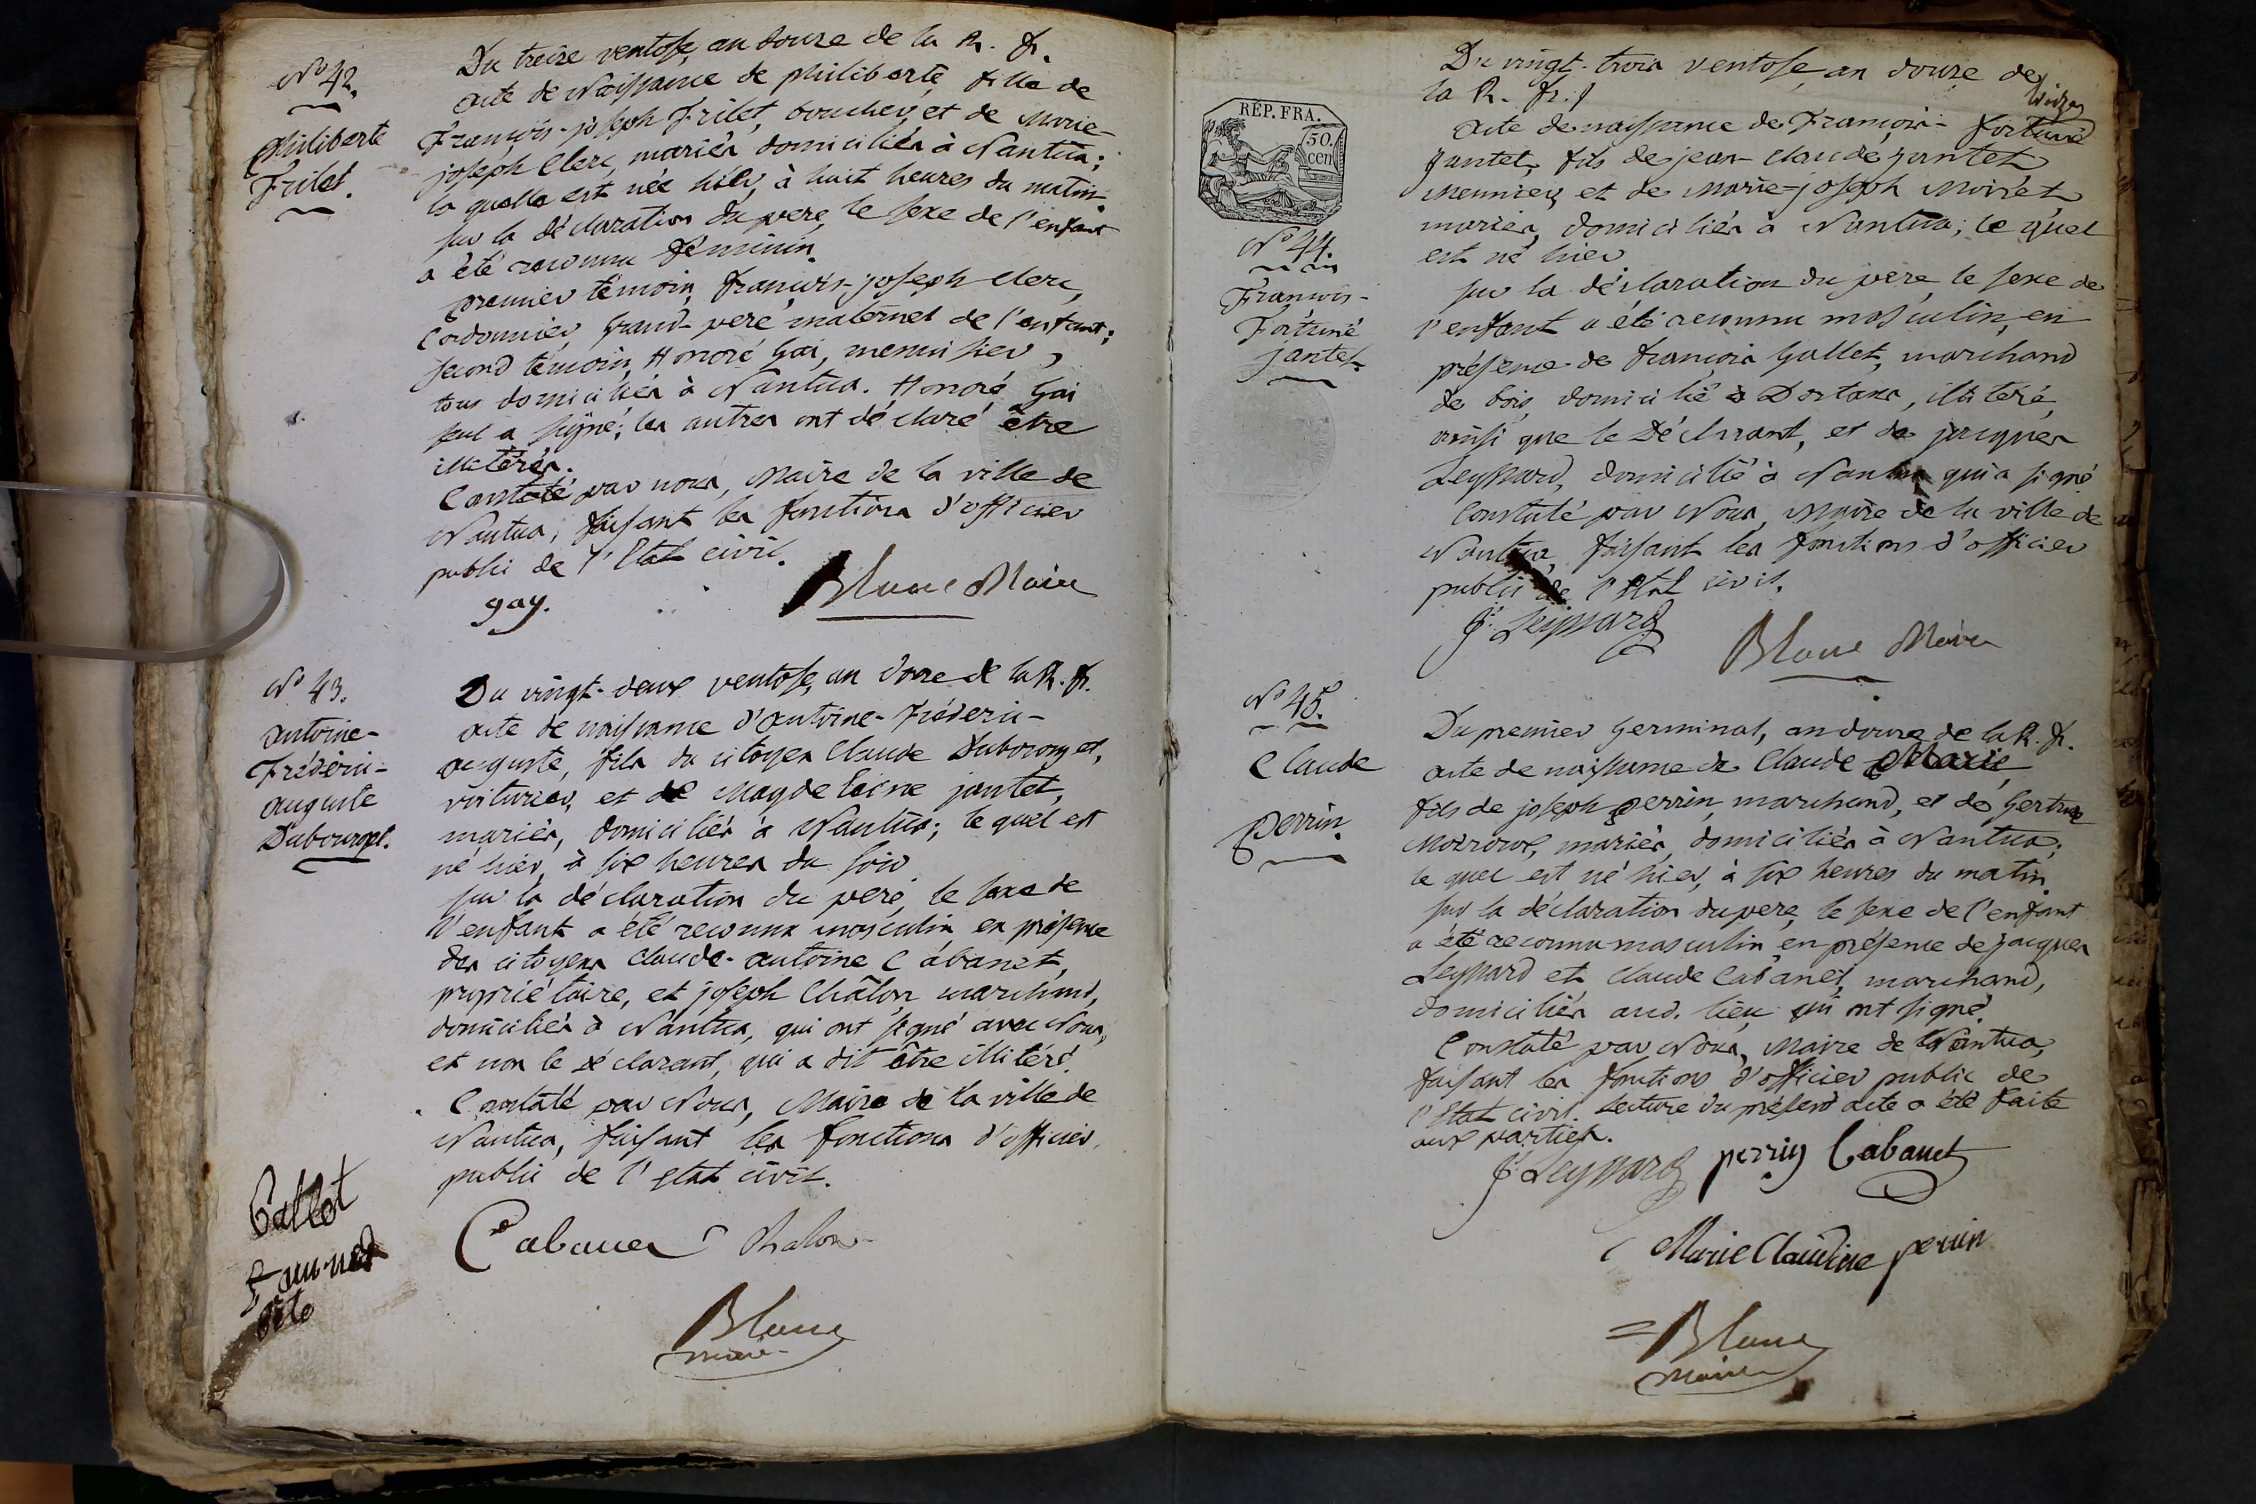 N° 42.
Philiberte
Frilet.
Du treize ventose, an douze de la R. fr.
acte de Naissance de philiberte, fille de
François-joseph Frilet, boucher, et de Marie-
joseph Clerc, mariés domiciliés à Nantua;
la quelle est née hier, à huit heures du matin.
sur la déclaration du pere, le sexe de l'enfant
a été reconnu feminin.
premier témoin, françois-joseph Clerc,
Cordonnier, grand-pere maternel de l'enfant;
second témoin, Honoré Gai, menuisier,
tous domiciliés à Nantua. Honoré Gai
seul a signé; les autres ont déclaré être
illitérés.
Constaté par nous, Maire de la ville de
Nantua, faisant les fonctions d'officier
public de l'Etat civil.
gay.
Blanc Maire
N° 43.
antoine-
Fréderic-
auguste
Dubourget.
Du vingt-deux ventose, an douze de la R. fr.
acte de naissance d'antoine-Fréderic-
auguste, fils du citoyen Claude Dubourget,
voiturier, et de Magdelaine jantet,
mariés, domiciliés à Nantua; le quel est
né hier, à six heures du soir
sur la déclaration du pere, le sexe de
l'enfant a été reconnu masculin en présence
des citoyens Claude-antoine Cabanet,
propriétaire, et joseph Châlon, marchand,
domiciliés à Nantua, qui ont signé avec Nous,
et non le déclarant, qui a dit être illitéré.
Constaté par Nous, Maire de la ville de
Nantua, faisant les fonctions d'officier
public de l'Etat civil.
Cabanet Chalon
Blanc
maire
RÉP. FRA.
50.
cen
N° 44.
François-
Fortuné
jantet.
Du vingt-trois ventose, an douze de
la R. fr.
acte de naissance de François-fortuné
jantet, fils de jean-Claude jantet,
Meunier, et de Marie-joseph Moiret
mariés, domiciliés à Nantua; le quel
est né hier.
sur la déclaration du pere, le sexe de
l'enfant a été reconnu masculin, en
présence de françois Gallet, marchand
de bois, domicilié à Dortans, illitéré,
ainsi que le Déclarant, et de jacques
Leyssard, domicilié à Nantua qui a signé
Constaté par Nous, Maire de la ville de
Nantua, faisant les fonctions d'officier
public de l'Etat civil.
J. Leyssard
Blanc Maire
N° 45.
Claude
Perrin.
Du premier Germinal, an douze de la R. fr.
acte de naissance de Claude Marie,
fils de joseph perrin, marchand, et de
mariés, domiciliés à Nantua;
le quel est né hier, à six heures du matin.
sur la déclaration du pere, le sexe de l'enfant
a été reconnu masculin, en présence de jacques
Leyssard et Claude Cabanet, marchand,
domiciliés aud. lieu qui ont signé.
Constaté par Nous, Maire de Nantua,
faisant les fonctions d'officier public de
l'Etat civil. Lecture du présent acte a été faite
aux parties.
J. Leyssard perrin Cabanet
Marie Claudine perrin
Blanc
Maire